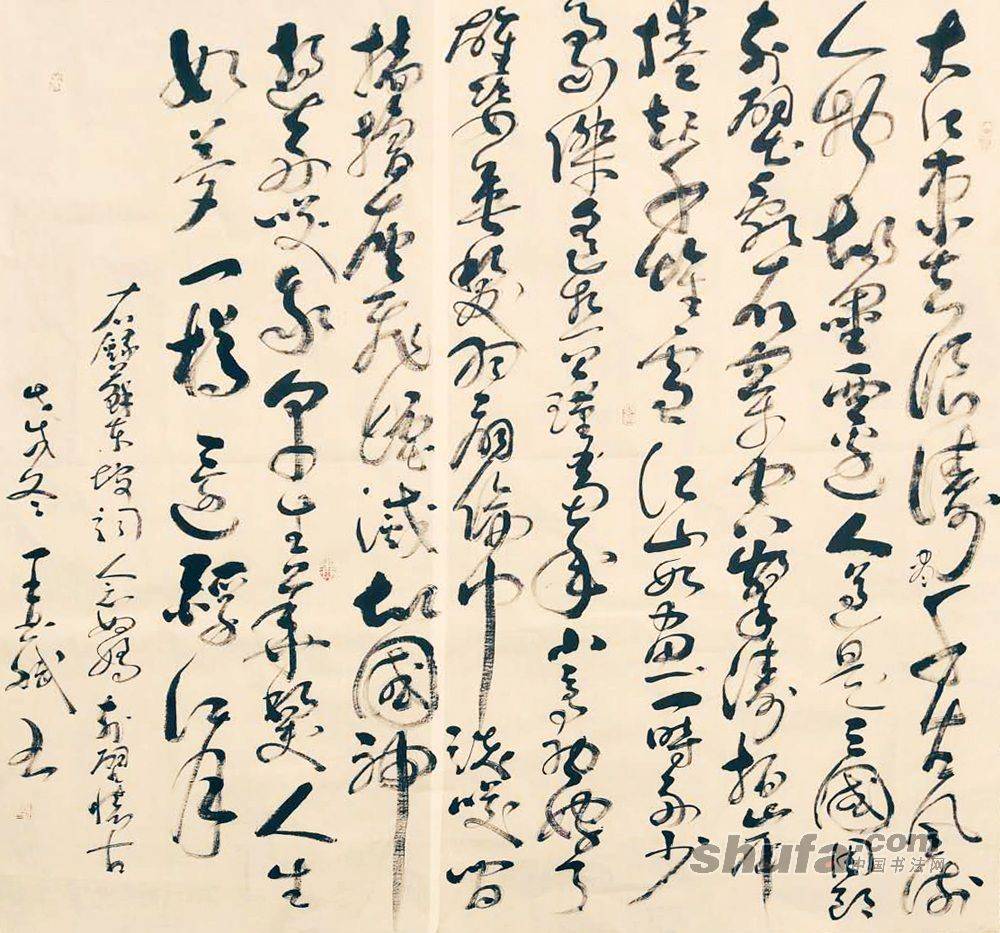 大江東去浪濤盡千古風流
人物故壘西邊人道是三國周郎
赤壁亂石穿空驚濤拍岸
捲起千堆雪江山如畫一時多少
豪傑遙想公瑾當年小喬初嫁了
雄姿英發羽扇綸巾談笑間
檣櫓灰飛煙滅故國神
遊多情笑我早生華髮人生
如夢一樽還酹江月
右錄蘇東坡詞念奴嬌赤壁懷古
戊戌冬王斌書
shufa.com
中国书法网